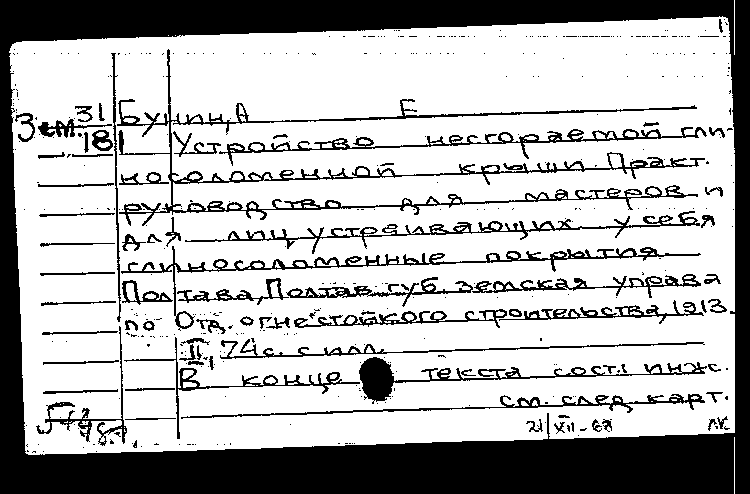 1
31 Бунин, А Е
Зем. 181 Устройство несгораемой гли-
носоломенной крыши. Практ.
руководство для мастеров и
для лиц, устраивающих у себя
глиносоломенные покрытия.
Полтава, Полтав. губ. земская управа
по Отд. огнестойкого строительства, 1913.
II, 74с. с илл.
В конце текста сост.: инж.
см. след. карт.
21/XII-68 ЛК